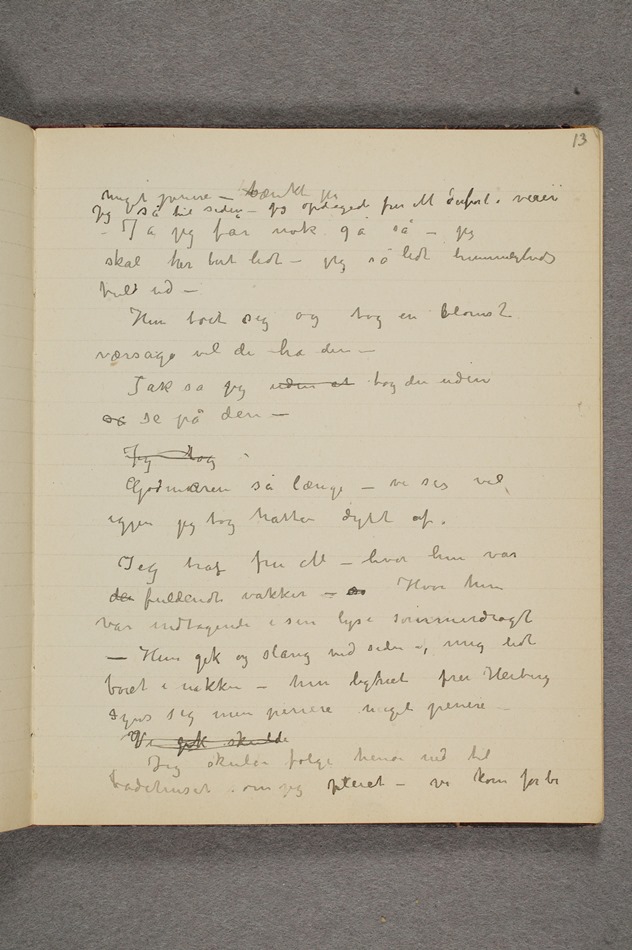 13
meget penere — tænkte jeg
jeg så til siden — jeg opdaged fru M
– Ja jeg får nok gå så — jeg
skal her bort lidt — jeg så lidt hemmeligheds
fuld ud —
Hun boet seg og tog en blomst
værsago vil de ha den —
Tak sa jeg uden at tog den uden
så se på den —
Jeg tog
Godmoren så længe — vi ses vel
igjen jeg tog hatten dybt af.
Jeg traf fru M — hvor hun var
der fuldendt vakker — Hvor hun
var indtagende i sin lyse sommerdragt
— Hun gik og slang ved siden –, mig lidt
boiet i nakken — hun lignet fru Heiberg
synes seg men penere meget penere
Vi gik skulde
Jeg skulde følge hende ned til
badehuset om jeg pleiet — vi kom forbi